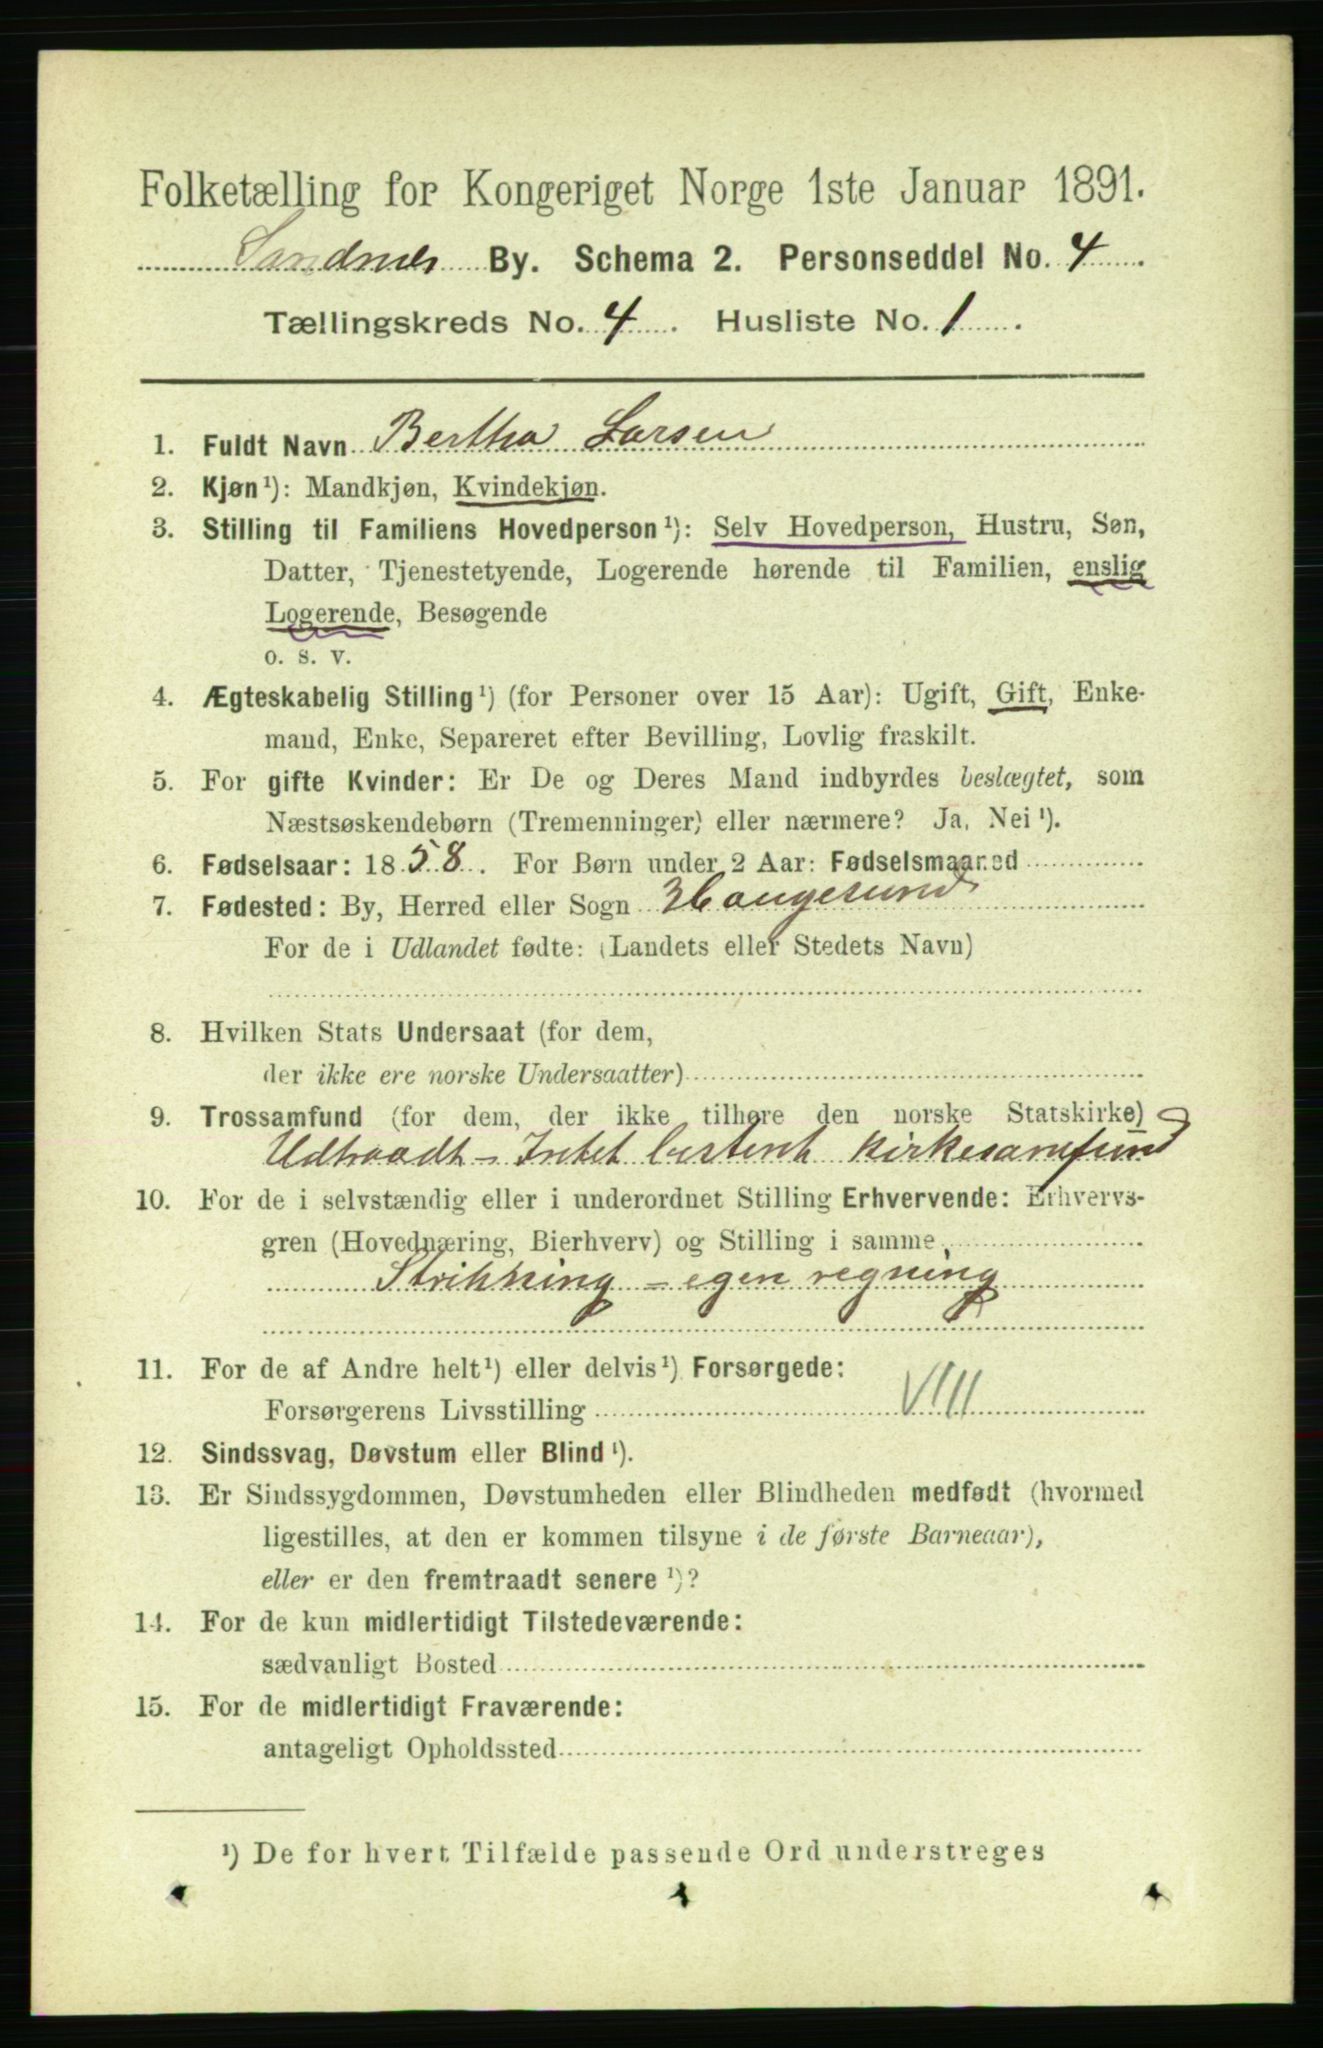 Folketælling for Kongeriget Norge 1ste Januar 1891.
Sandnes By. Schema 2. Personseddel No. 4.
Tællingskreds No. 4. Husliste No. 1.
1. Fuldt Navn Bertha Larsen
2. Kjøn¹): Mandkjøn, Kvindekjøn.
3. Stilling til Familiens Hovedperson¹): Selv Hovedperson, Hustru, Søn,
Datter, Tjenestetyende, Logerende hørende til Familien, enslig
Logerende, Besøgende
o. s. v.
4. Ægteskabelig Stilling¹) (for Personer over 15 Aar): Ugift, Gift, Enke-
mand, Enke, Separeret efter Bevilling, Lovlig fraskilt.
5. For gifte Kvinder: Er De og Deres Mand indbyrdes beslægtet, som
Næstsøskendebørn (Tremenninger) eller nærmere? Ja, Nei¹).
6. Fødselsaar: 1858. For Børn under 2 Aar: Fødselsmaaned
7. Fødested: By, Herred eller Sogn Haugesund
For de i Udlandet fødte: (Landets eller Stedets Navn)
8. Hvilken Stats Undersaat (for dem,
der ikke ere norske Undersaatter)
9. Trossamfund (for dem, der ikke tilhøre den norske Statskirke)
Udtraadt - Intet bestemt kirkesamfund
10. For de i selvstændig eller i underordnet Stilling Erhvervende: Erhvervs-
gren (Hovednæring, Bierhverv) og Stilling i samme
Strikning - egen regning
11. For de af Andre helt¹) eller delvis¹) Forsørgede:
Forsørgerens Livsstilling VIII
12. Sindssvag, Døvstum eller Blind¹).
13. Er Sindssygdommen, Døvstumheden eller Blindheden medfødt (hvormed
ligestilles, at den er kommen tilsyne i de første Barneaar),
eller er den fremtraadt senere¹)?
14. For de kun midlertidigt Tilstedeværende:
sædvanligt Bosted
15. For de midlertidigt Fraværende:
antageligt Opholdssted
¹) De for hvert Tilfælde passende Ord understreges